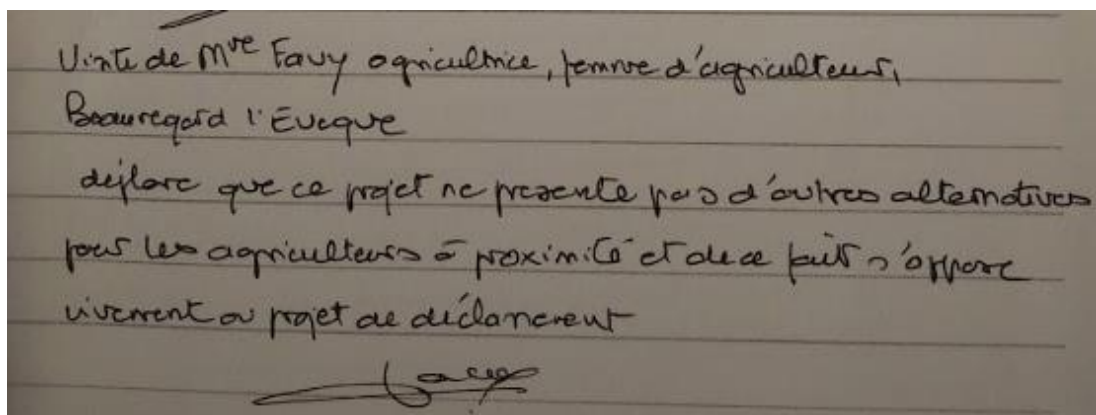 Visite de Mme Favy agricultrice, femme d'agriculteur,
Beauregard l'Evêque
déplore que ce projet ne présente pas d'autres alternatives
pour les agriculteurs à proximité et de ce fait s'oppose
vivement au projet de déclassement